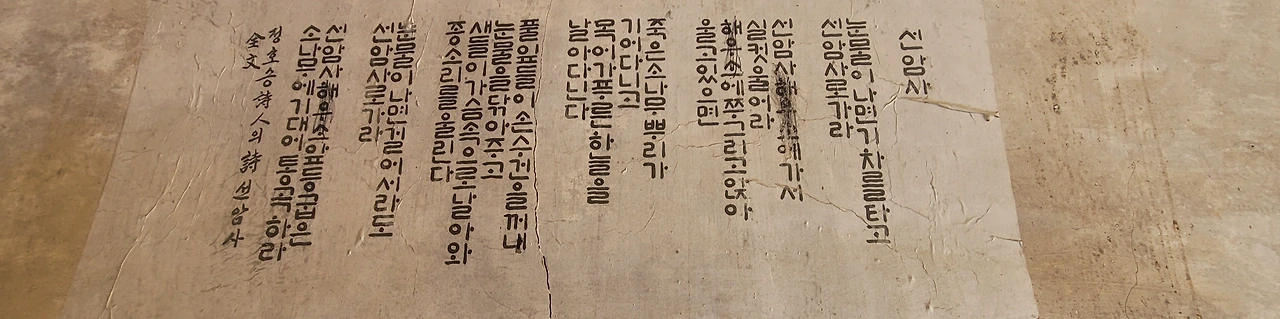 선암사
눈물이 나면 기차를 타고
선암사로 가라
선암사 해우소에 가서
실컷 울어라
해우소에 쭈그리고 앉아
울고 있으면
죽은 소나무 뿌리가
기어다니고
목어가 푸른 하늘을
날아다닌다
풀잎들이 손수건을 꺼내
눈물을 닦아주고
새들이 가슴속으로 날아와
종소리를 울린다
눈물이 나면 걸어서라도
선암사로 가라
선암사 해우소 앞 등 굽은
소나무에 기대어 통곡하라
정호승 詩人의 詩 선암사
全文